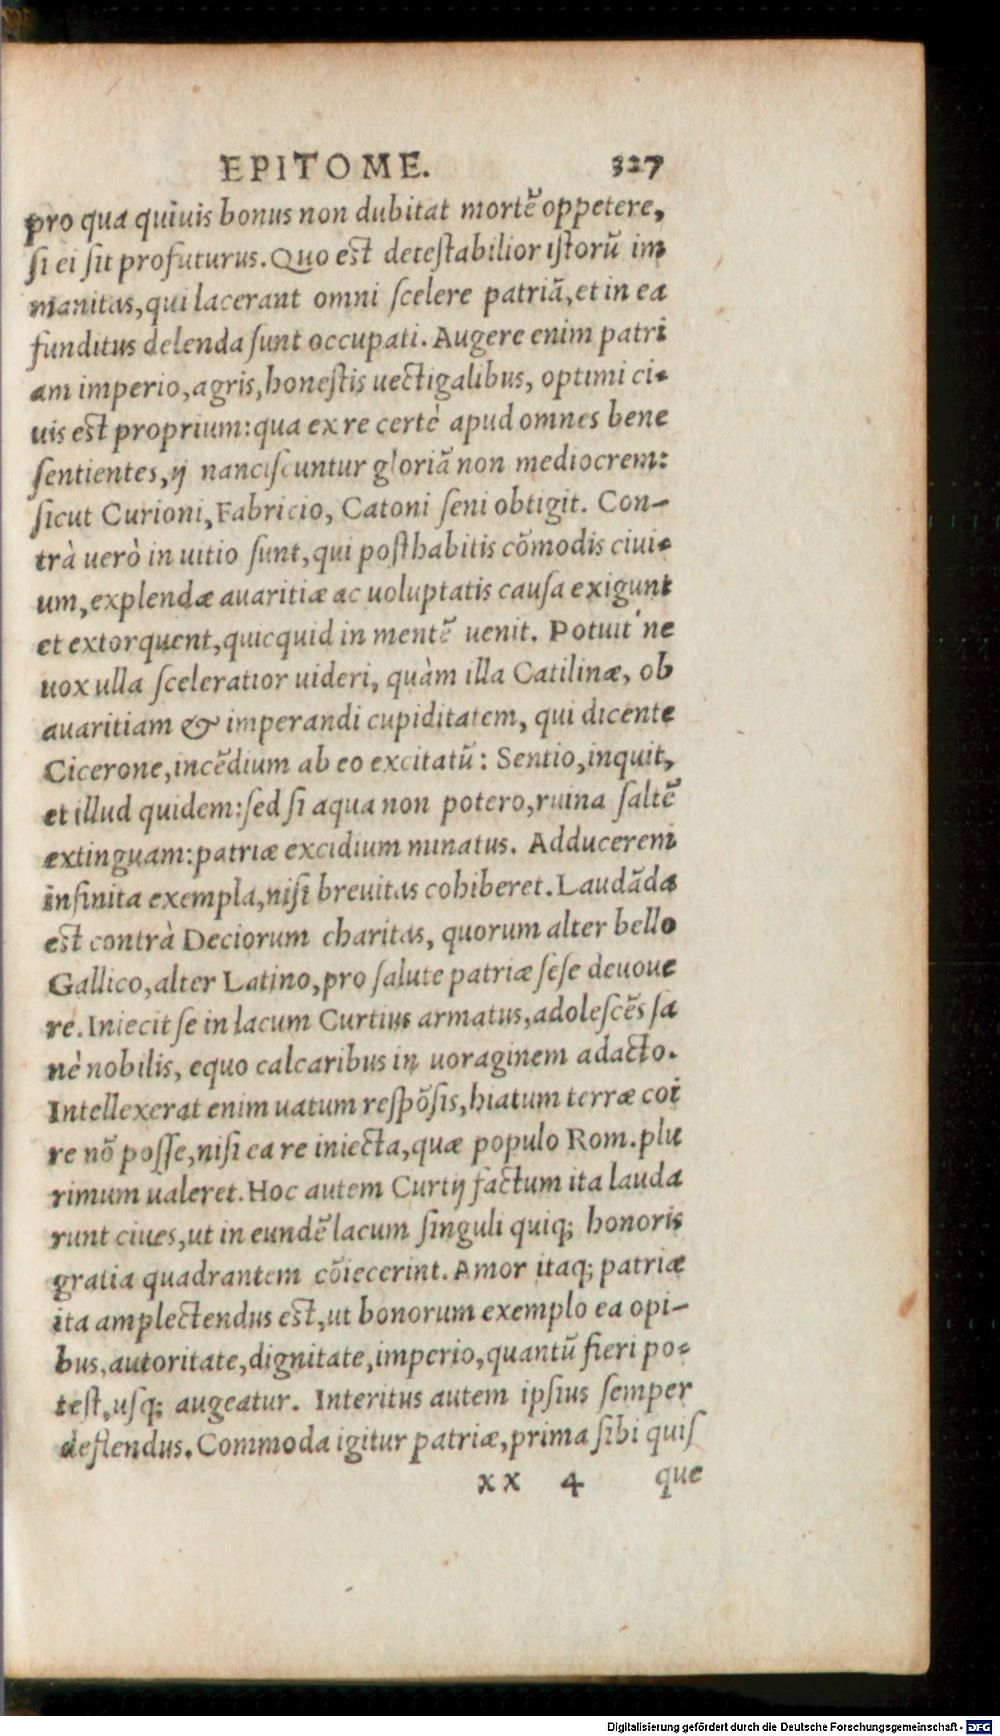 EPITOME. 327
pro qua quiuis bonus non dubitat mortẽ oppetere,
ſi ei ſit profuturus. Quo est deteſtabilior iſtorũ im
manitas, qui lacerant omni ſcelere patriã, et in ea
funditus delenda ſunt occupati. Augere enim patri
am imperio, agris, honeſtis uectigalibus, optimi ci-
uis est proprium: qua ex re certè apud omnes bene
ſentientes, ij nanciſcuntur gloriã non mediocrem:
ſicut Curioni, Fabricio, Catoni ſeni obtigit. Con-
trà uerò in uitio ſunt, qui poſthabitis cõmodis ciui-
um, explendæ auaritiæ ac uoluptatis cauſa exigunt
et extorquent, quicquid in mentẽ uenit. Potuit'ne
uox ulla ſceleratior uideri, quàm illa Catilinæ, ob
auaritiam & imperandi cupiditatem, qui dicente
Cicerone, incẽdium ab eo excitatũ: Sentio, inquit,
et illud quidem: ſed ſi aqua non potero, ruina ſaltẽ
extinguam: patriæ excidium minatus. Adducerem
infinita exempla, niſi breuitas cohiberet. Laudãda
est contrà Deciorum charitas, quorum alter bello
Gallico, alter Latino, pro ſalute patriæ ſeſe deuoue
re. Iniecit ſe in lacum Curtius armatus, adoleſcẽs ſa
nè nobilis, equo calcaribus in uoraginem adacto.
Intellexerat enim uatum reſpõſis, hiatum terræ coi
re nõ poſſe, niſi ea re iniecta, quæ populo Rom. plu
rimum ualeret. Hoc autem Curtij factum ita lauda
runt ciues, ut in eundẽ lacum ſinguli quiq; honoris
gratia quadrantem cõiecerint. Amor itaq; patriæ
ita amplectendus est, ut bonorum exemplo ea opi-
bus, autoritate, dignitate, imperio, quantũ fieri po-
teſt, uſq; augeatur. Interitus autem ipſius ſemper
deflendus. Commoda igitur patriæ, prima ſibi quiſ
xx 4 que
Digitalisierung gefördert durch die Deutsche Forschungsgemeinschaft - DFG